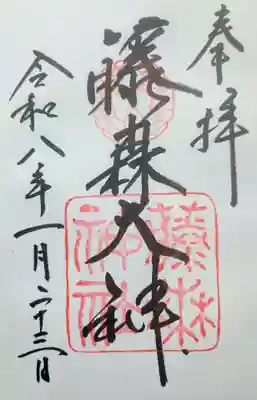 奉拝
藤森大神
令和八年一月二十三日
藤森
神社